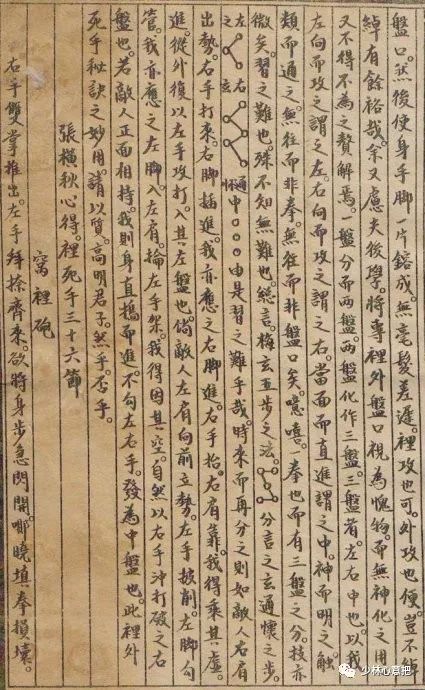 盤口。然後便身手脚一片鎔成。無毫髮差遲。裡攻也可。外攻也便。豈不
綽有餘裕哉。余又慮夫後學。將專裡外盤口視為愧物。而無神化之用
又不得不為之贅解焉。一盤分而兩盤。兩盤化作三盤。三盤者左右中也。以我
左向而攻之謂之左。右向而攻之謂之右。當面而直進謂之中。神而明之。觸
類而通之。無往而非拳。無往而非盤口矣。噫嘻。一拳也而有三盤之分。技亦
微矣。習之難也。殊不知無難也。總言。梅玄五步之法 分言之玄通懷之步。
之 左右 玄 通 懷 中〇〇〇由是習之難乎哉。時來而再分之則如敵人右肩
出勢。右手打來。右脚插進。我亦應之右脚進。右手抬。右肩靠。我得乘其虛。
進。從外復以左手攻打。入其左盤也。倘敵人左肩向前立勢。左手披削。左脚勾
管。我亦應之左脚。入左肩。掄左手架。我得因其空。自然以右手沖打破之右
盤也。若敵人正面相持。我則身直搗而進。不勾左右手。發為中盤也。此裡外
死手秘訣之妙用。請以質。高明君子。然乎。否乎。
張横秋心得。裡死手三十六節
窩裡砲
右手雙掌推出。左手 捺齊來。欲將身步急閃開。哪曉填拳損壞。
少林心意把